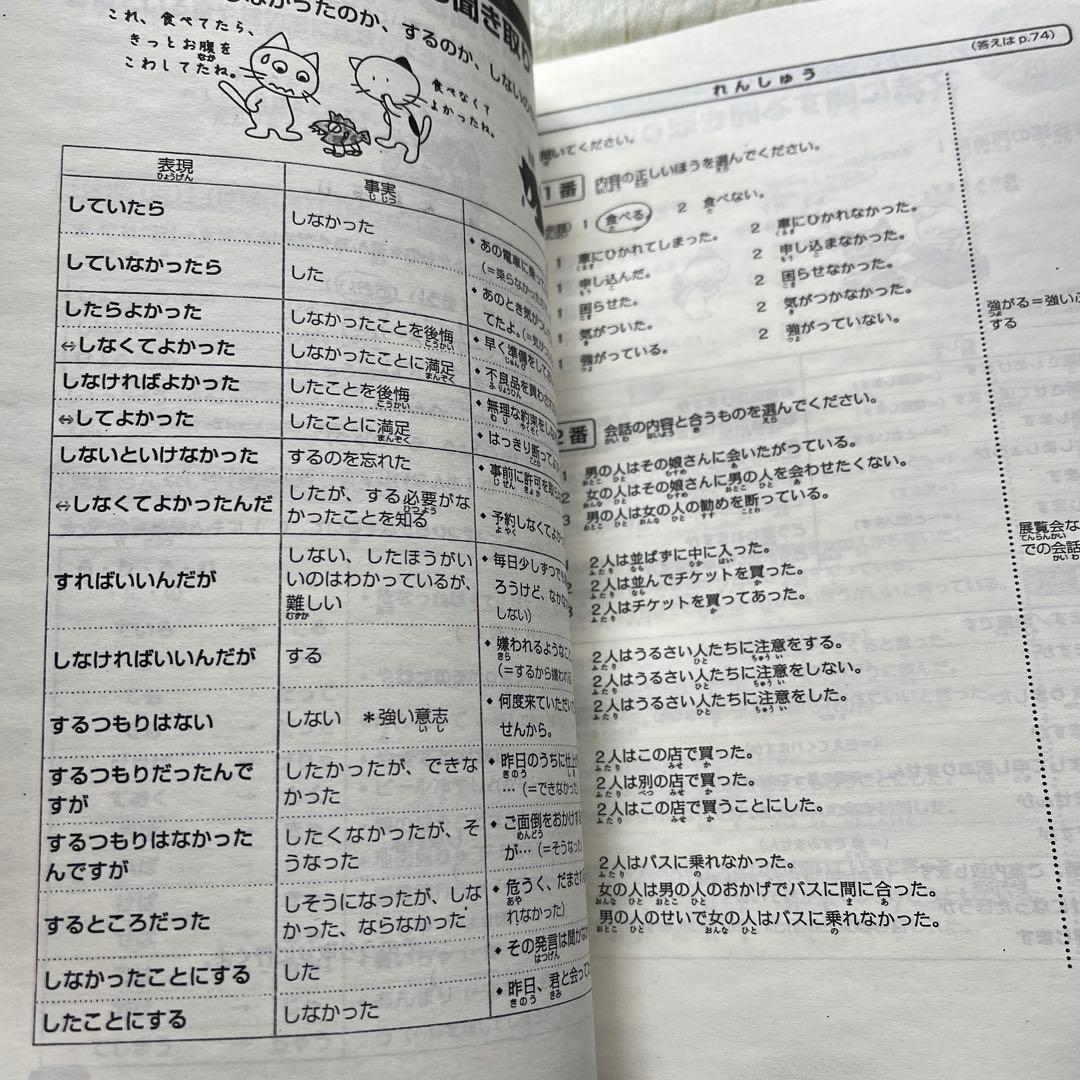 聞き取り
なかったのか、するのか、しないの
これ、食べてたら、
きっとお腹を
こわしてたね。
食べなくて
よかったね。
表現 事実
していたら しなかった
していなかったら した
したらよかった しなかったことを後悔
⇔しなくてよかった しなかったことに満足
しなければよかった したことを後悔
⇔してよかった したことに満足
しないといけなかった するのを忘れた
⇔しなくてよかったんだ したが、する必要がな
かったことを知る
すればいいんだが しない、したほうがい
いのはわかっているが、
難しい
しなければいいんだが する
するつもりはない しない *強い意志
するつもりだったんで
すが
したかったが、できな
かった
するつもりはなかった
んですが
したくなかったが、そ
うなった
するところだった しそうになったが、しな
かった、ならなかった
しなかったことにする した
したことにする しなかった
◆あの電車に乗っ
(=乗らなかった
◆あのとき気がつい
てたよ。(=気が
◆早く準備をして
◆不良品を買わされ
◆無理な約束をし
◆はっきり断って
◆事前に許可を取
◆予約しなくてよか
◆毎日少しずつで
ろうけど、なかな
しない)
◆嫌われるようなこ
(=するから嫌われる
◆何度来ていただい
せんから。
◆昨日のうちに仕上
…(=できなかった
◆ご面倒をおかけする
が…(=そうなった
◆危うく、だまされ
れなかった)
◆その発言は聞かな
◆昨日、君と会って
(答えは p.74)
れんしゅう
聞いてください。
1番 内容の正しいほうを選んでください。
1 食べる 2 食べない。
1 車にひかれてしまった。 2 車にひかれなかった。
1 申し込んだ。 2 申し込まなかった。
1 困らせた。 2 困らせなかった。
1 気がついた。 2 気がつかなかった。
1 強がっている。 2 強がっていない。
強がる=強いふ
する
2番 会話の内容と合うものを選んでください。
1 男の人はその娘さんに会いたがっている。
2 女の人はその娘さんに男の人を会わせたくない。
3 男の人は女の人の勧めを断っている。
2人は並ばずに中に入った。
2人は並んでチケットを買った。
2人はチケットを買ってあった。
展覧会な
での会話
2人はうるさい人たちに注意をする。
2人はうるさい人たちに注意をしない。
2人はうるさい人たちに注意をした。
2人はこの店で買った。
2人は別の店で買った。
2人はこの店で買うことにした。
2人はバスに乗れなかった。
女の人は男の人のおかげでバスに間に合った。
男の人のせいで女の人はバスに乗れなかった。